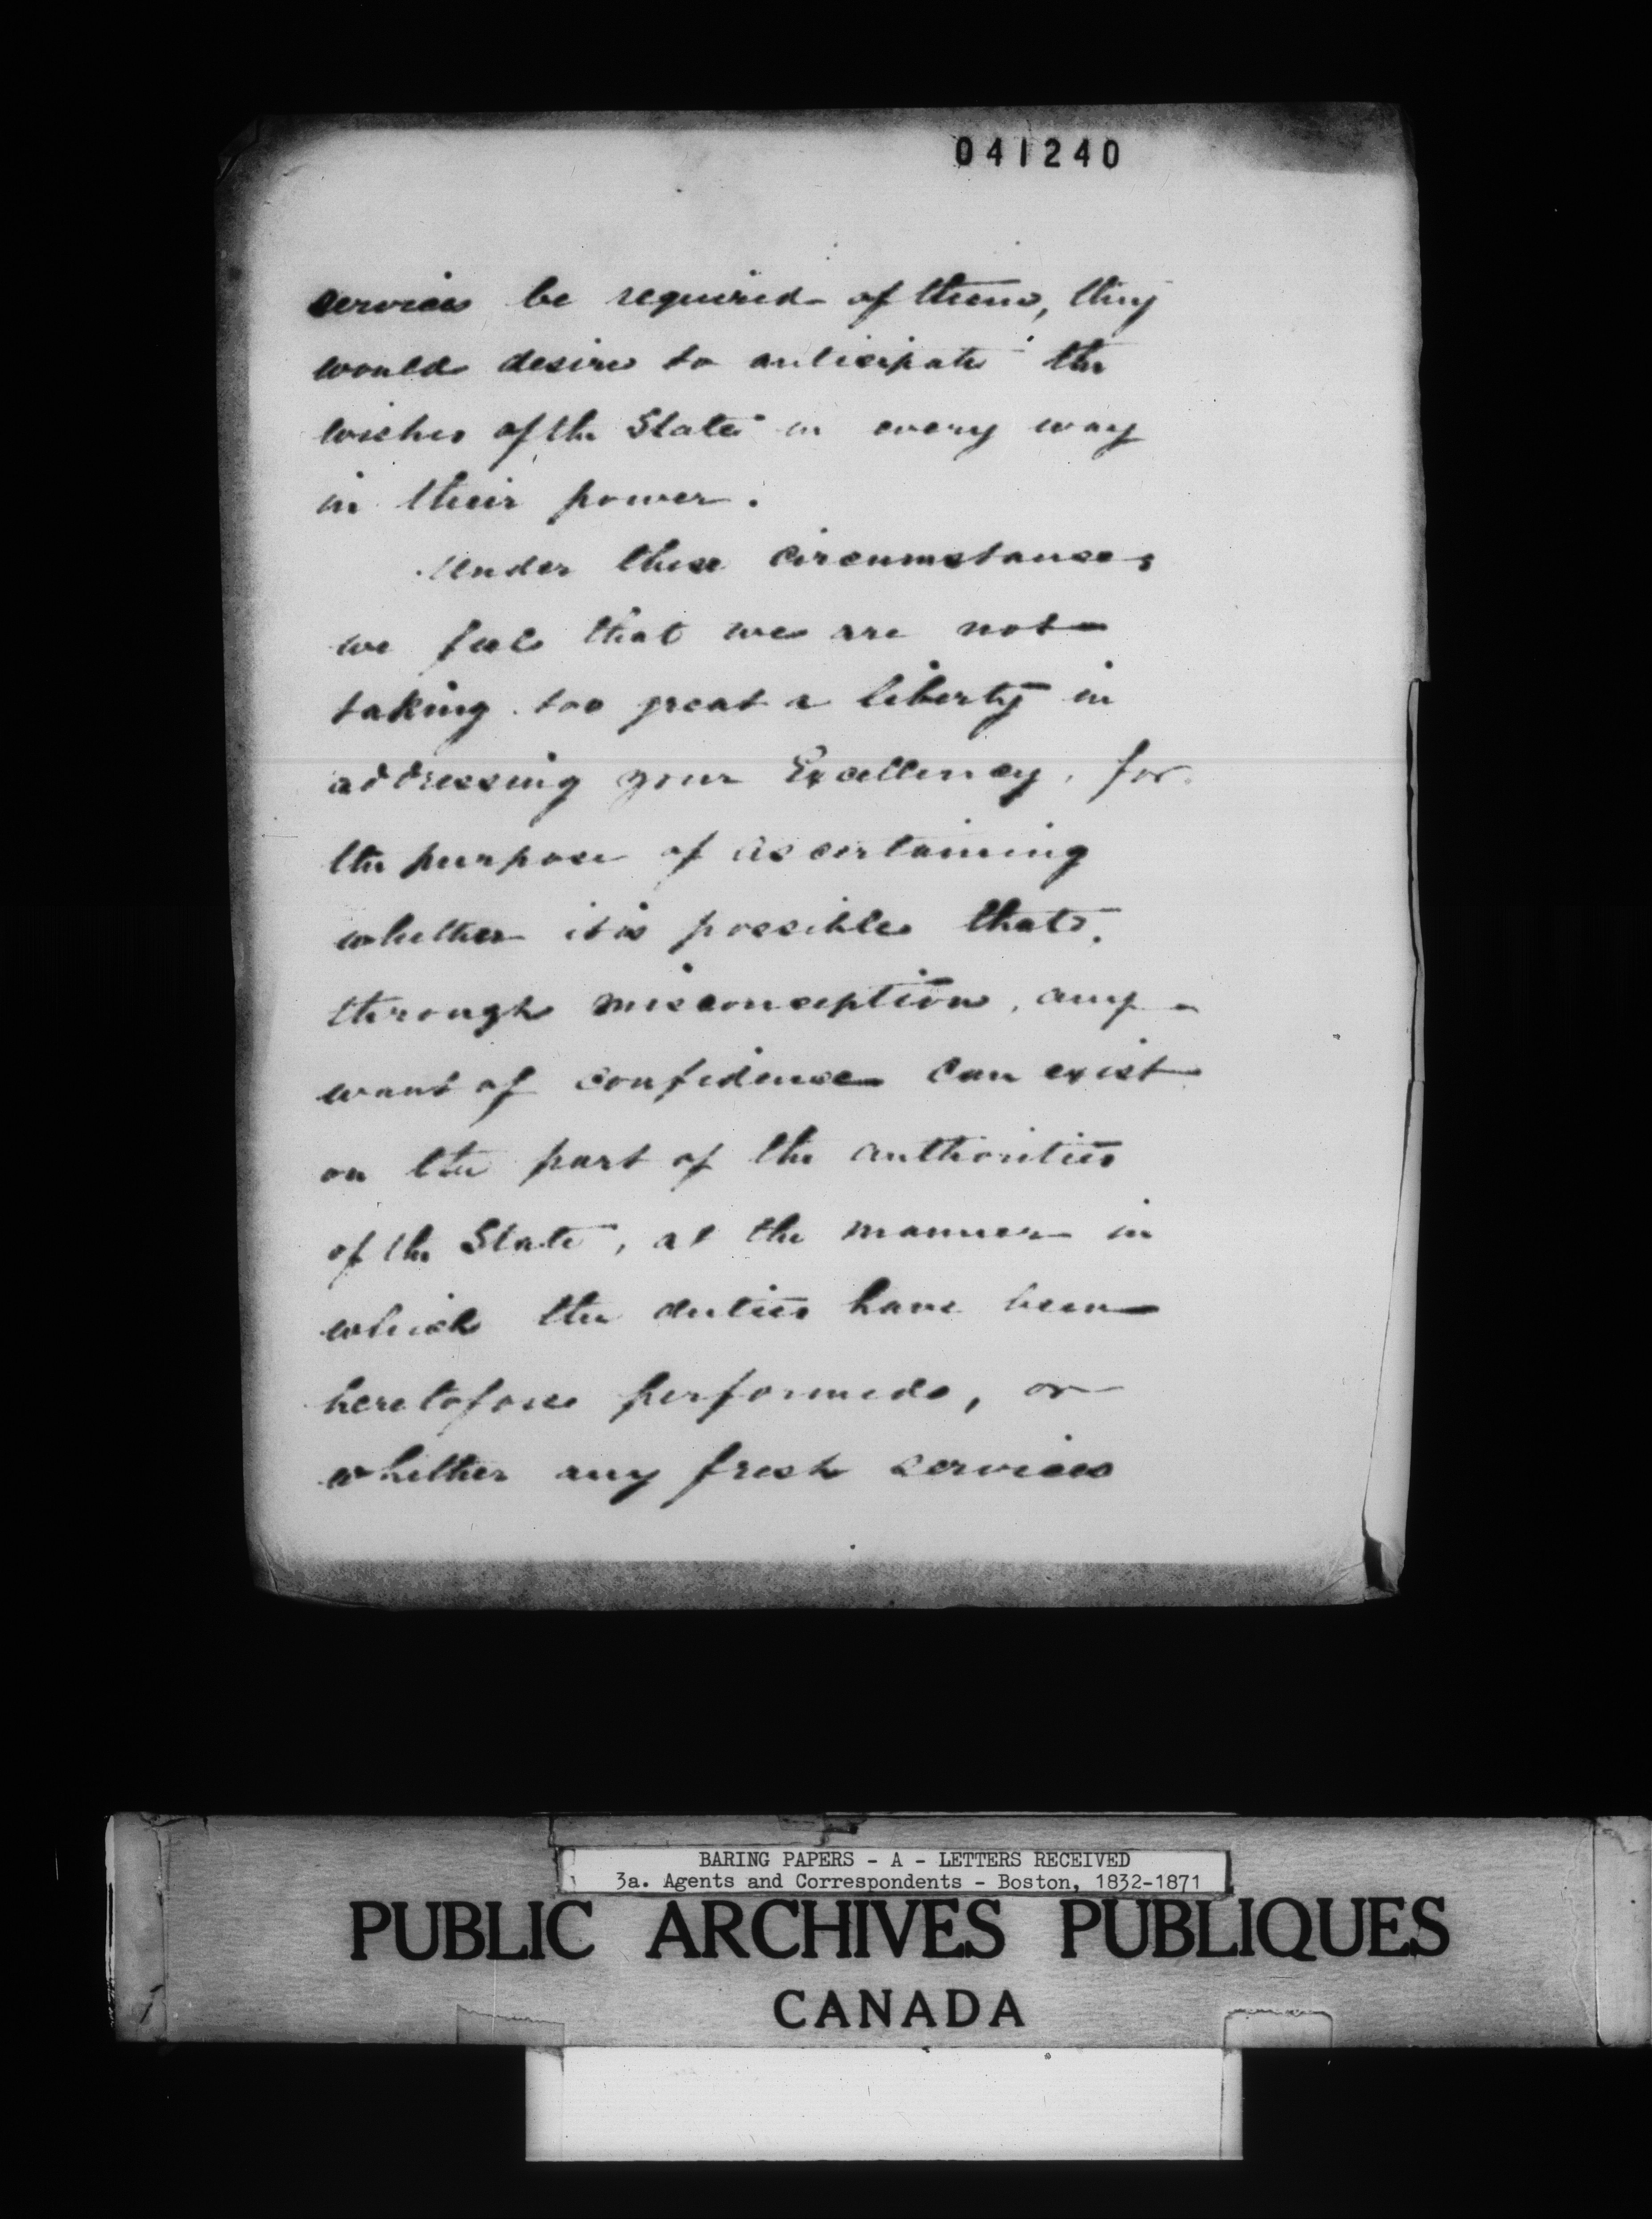 041240
services be required of them, they
would desire to anticipate the
wishes of the State in every way
in their power.
Under these circumstances
we feel that we are not
taking too great a liberty in
addressing your Excellency, for
the purpose of ascertaining
whether it is possible that,
through misconception, any
want of confidence can exist
on the part of the authorities
of the State, at the manner in
which the duties have been
heretofore performed, or
whether any fresh services
BARING PAPERS - A - LETTERS RECEIVED
3a. Agents and Correspondents - Boston, 1832-1871
PUBLIC ARCHIVES PUBLIQUES
CANADA